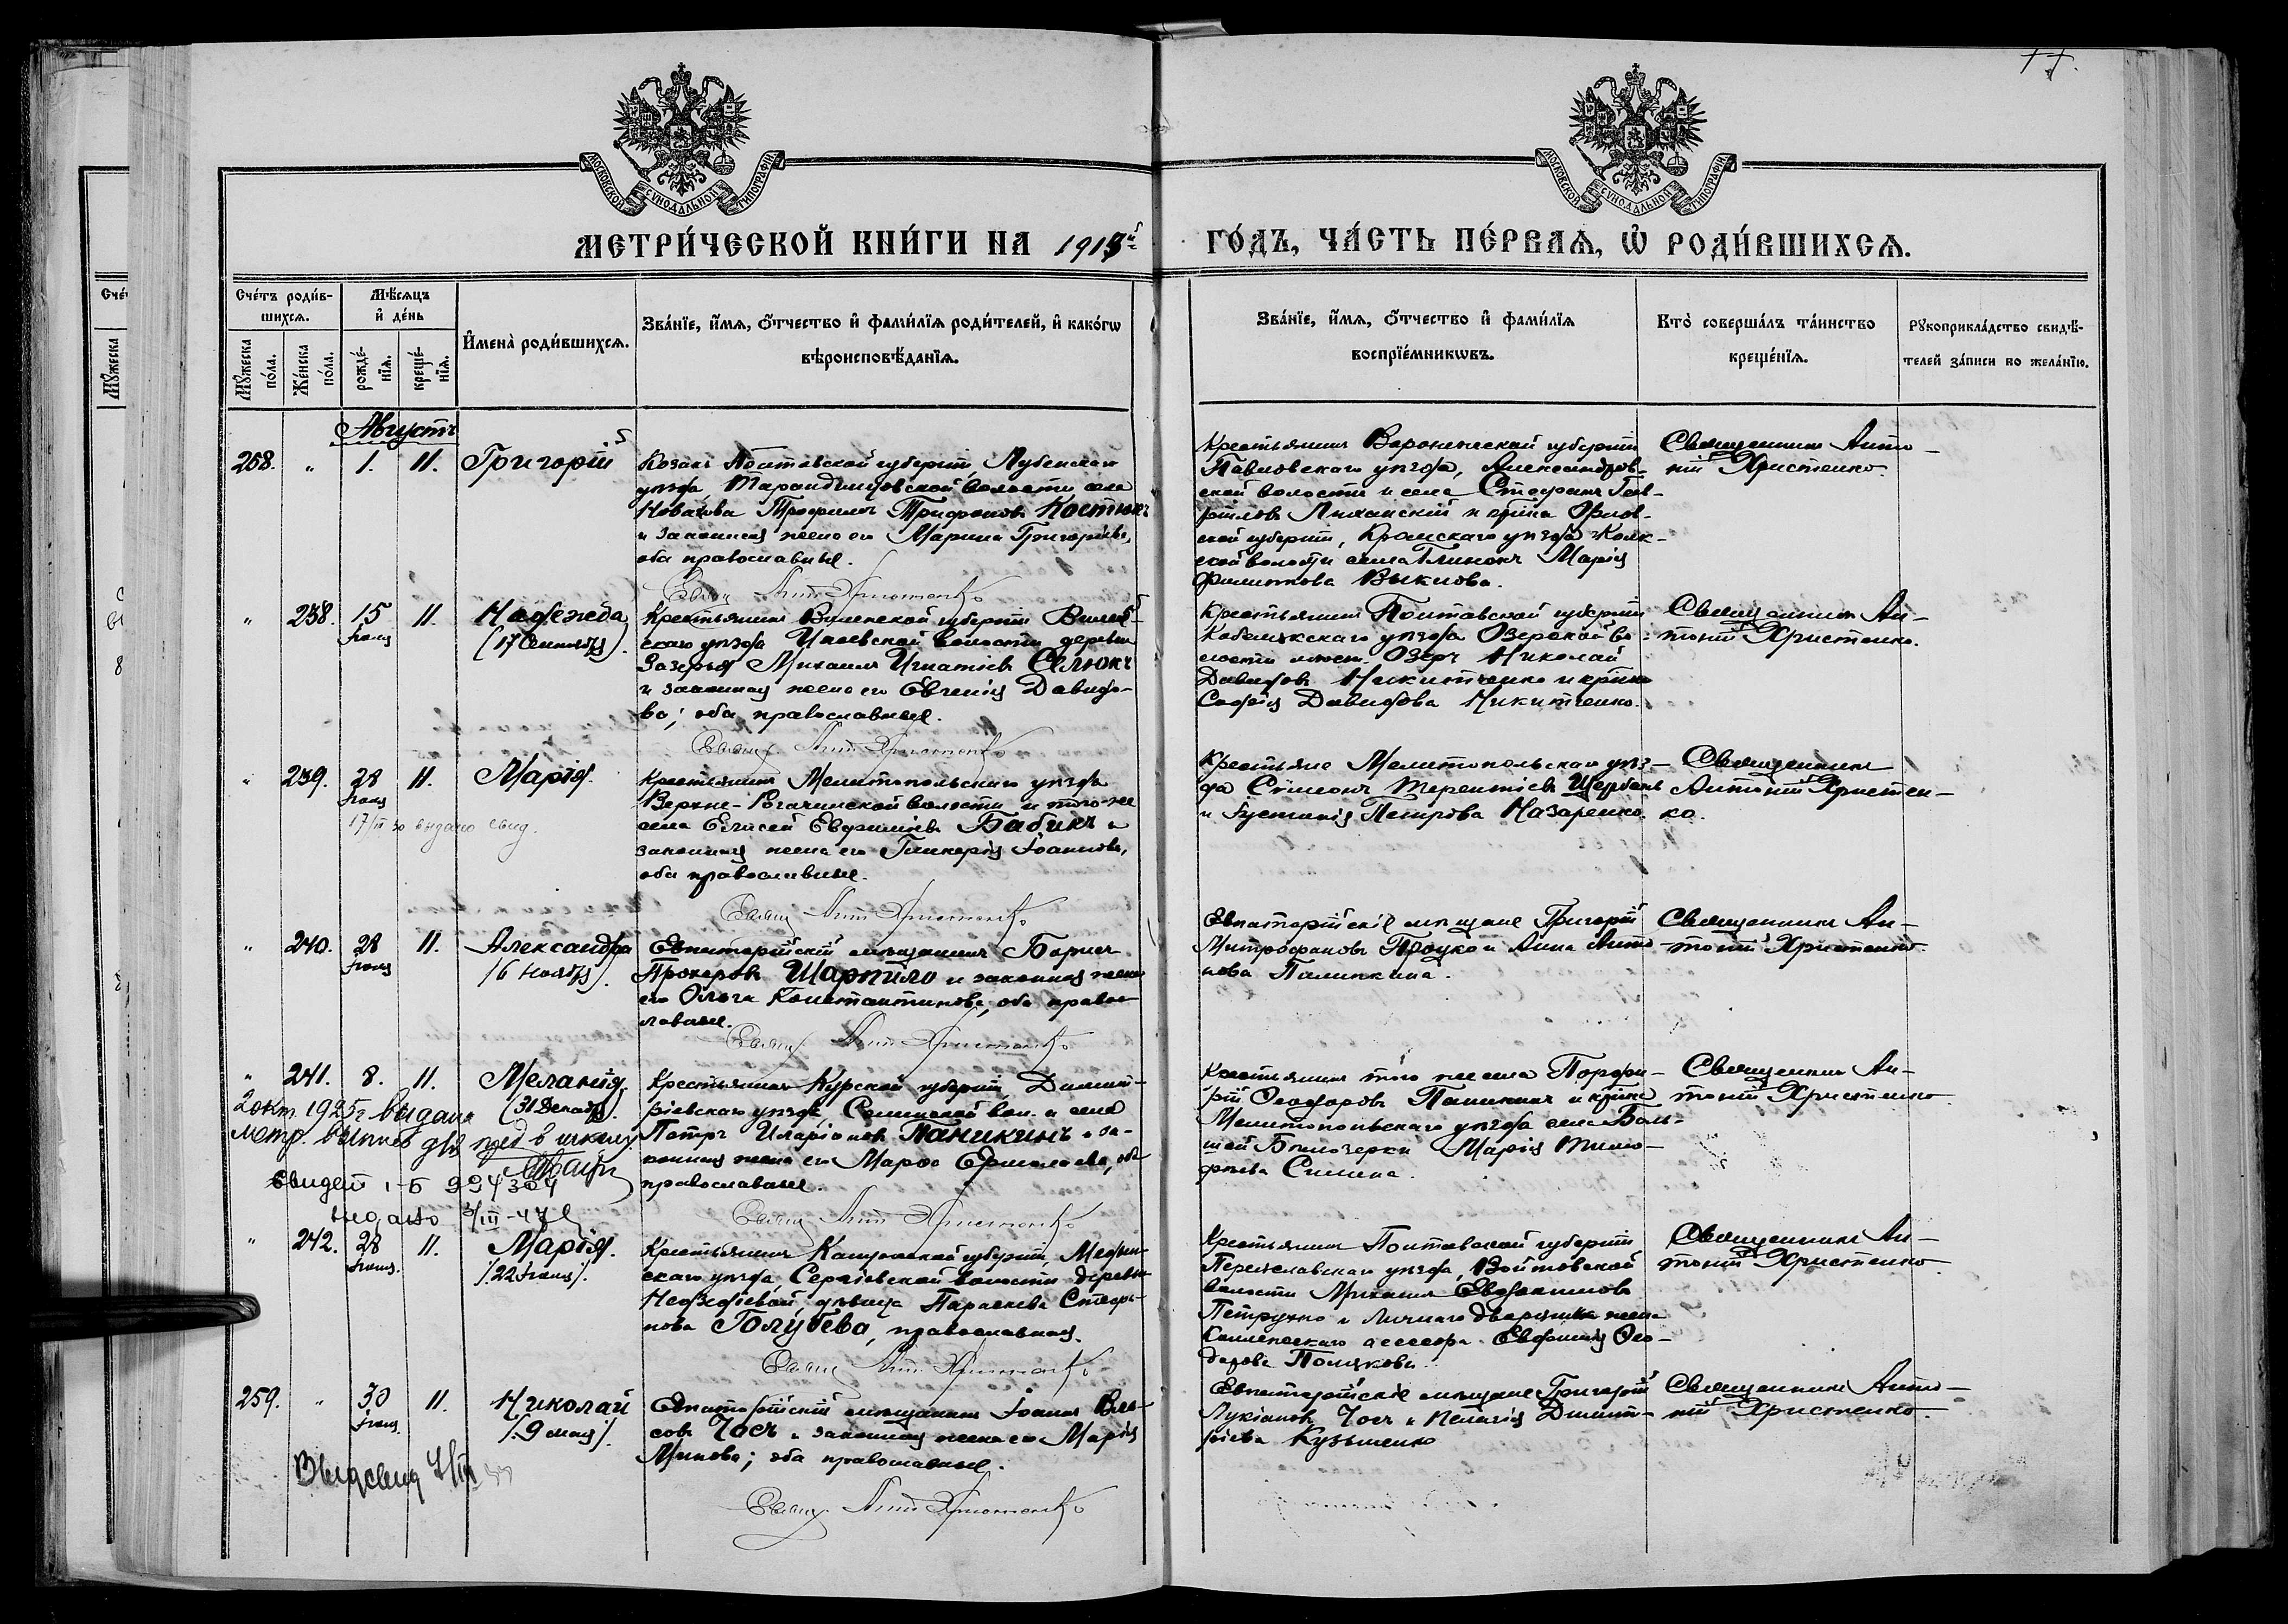 МОСКОВСКОЙ СУНОДАЛЬНОЙ ТИПОГРАФІИ
МОСКОВСКОЙ СУНОДАЛЬНОЙ ТИПОГРАФІИ
МЕТРИ́ЧЕСКОЙ КНИ́ГИ НА 1913й ГО́ДЪ, ЧА́СТЬ ПЕ́РВАѦ, Ѡ҆ РОДИ́ВШИХСѦ.
Сче́тъ роди́в-
шихсѧ.
Мꙋ́жеска по́ла.
Же́нска по́ла.
Мѣ́сѧцъ
и҆ де́нь
рожде́-нїѧ.
креще́-нїѧ.
И҆мена̀ роди́вшихсѧ.
Зва́нїе, и҆́мѧ, ѻ҆́тчество и҆ фами́лїѧ роди́телей, и҆ како́гѡ
вѣроисповѣ́данїѧ.
Зва́нїе, и҆́мѧ, ѻ҆́тчество и҆ фами́лїѧ
воспрїе́мникѡвъ.
Кто̀ соверша́лъ та́инство
креще́нїѧ.
Рꙋкоприкла́дство свидѣ́-
телей за́писи по жела́нїю.
Августъ
258. " 1. 11. Григорій
Козакъ Полтавской губерніи, Лубенскаго
уѣзда, Тарандинцовской волости села
Новаковъ Трофимъ Трифоновъ Костюкъ
и законная жена его Марина Григорьева,
оба православные.
Свящ. Ант. Христенко
Крестьянинъ Воронежской губерніи
Павловскаго уѣзда, Александров-
ской волости и села Стефанъ Гав-
риловъ и кр-ка Орлов-
ской губерніи, Кромскаго уѣзда
ской волости села Глинокъ Марія
Филиппова Выкиова.
Священникъ Анто-
ній Христенко.
" 238. 15 Іюля 11. Надежда
(17 Сентября).
Крестьянинъ Виленской губерніи Вилей-
скаго уѣзда волости деревни
Зазерья Михаилъ Игнатіевъ Селюкъ
и законная жена его Евгенія Давидо-
ва; оба православные.
Свящ. Ант. Христенко
Крестьянинъ Полтавской губерніи
Кобелякскаго уѣзда Озерской во-
лости мѣст. Озеръ Николай
Давидовъ Никитченко и кр-ка
Софія Давидова Никитченко.
Священникъ Ан-
тоній Христенко.
" 239. 28 Іюля 11. Марія.
17/III 30 выдано свид.
Крестьянинъ Мелитопольскаго уѣзда
Верхне-Рогачинской волости и того-же
села Елисей Евфиміевъ Бабикъ и
законная жена его Гликерія Іоаннова,
оба православные.
Свящ. Ант. Христенко
Крестьяне Мелитопольскаго уѣз-
да Сѵмеонъ Терентіевъ Щербань
и Іустинія Петрова Назаренко.
Священникъ
Антоній Христен-
ко.
" 240. 28 Іюля 11. Александра
/6 Ноября/.
Евпаторійскій мѣщанинъ Борисъ
Прохоровъ Шарпило и законная жена
его Ольга Константинова, оба право-
славные.
Свящ. Ант. Христенко
Евпаторійскіе мѣщане Григорій
Митрофановъ Процко и Анна Анто-
нова Палинкина.
Священникъ Ан-
тоній Христенко.
" 241. 8. 11. Меланія.
(31 Декабря).
2 окт. 1925 г выдана
метр. выпись для пред в школу
свидет. I-Б 994304
выдано 3/III-47
Крестьянинъ Курской губерніи, Димит-
ріевскаго уѣзда, вол. и села
Петръ Иларіоновъ Паникинъ и за-
конная жена его Марфа Ермолаева, оба
православные.
Свящ. Ант. Христенко
Крестьянинъ того же села Порфи-
рій Ѳеодоровъ Паникинъ и кр-ка
Мелитопольскаго уѣзда села Боль-
шой Бѣлозерки Марія Тимо-
феева Силина.
Священникъ Ан-
тоній Христенко.
" 242. 28 Іюля. 11. Марія.
/22 Іюля/.
Крестьянка Калужской губерніи, Медын-
скаго уѣзда, Сергіевской волости деревни
дѣвица Параскева Стефа-
нова Голубева, православная.
Свящ. Ант. Христенко
Крестьянинъ Полтавской губерніи
Переяславскаго уѣзда, Войтовской
волости Михаилъ Евдокимовъ
Петрухно и личнаго дворянина жена
Коллежскаго ассесора Евфимія Ѳео-
дорова Полякова.
Священникъ Ан-
тоній Христенко.
259. " 30 Іюля 11. Николай
/9 мая/.
Выд свид
Евпаторійскій мѣщанинъ Іоаннъ Вла-
совъ Чосъ и законная жена его Марія
Минова; оба православные.
Свящ. Ант. Христенко
Евпаторійскіе мѣщане Григорій
Лукіановъ Чосъ и Пелагія Димит-
ріева Кузьменко
Священникъ Анто-
ній Христенко.